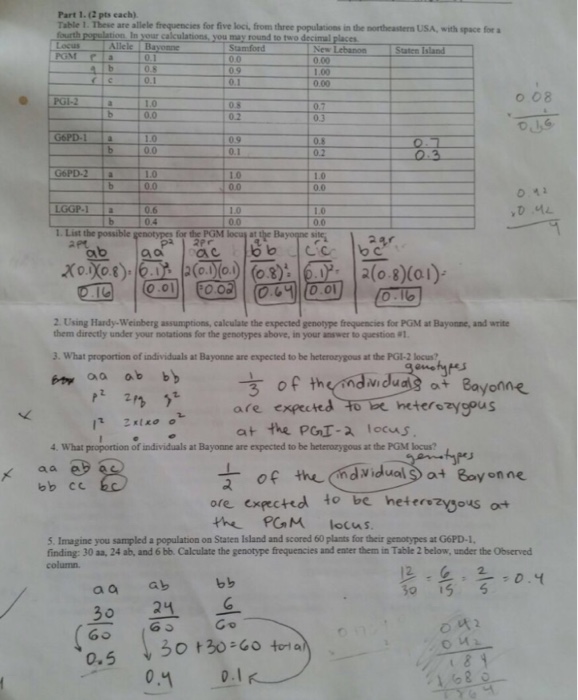 Part 1. (2 pts each)
Table 1. These are allele frequencies for five loci, from three populations in the northeastern USA, with space for a
fourth population. In your calculations, you may round to two decimal places.
Locus Allele Bayonne Stamford New Lebanon Staten Island
PGM p a 0.1 0.0 0.00
q b 0.8 0.9 1.00
r c 0.1 0.1 0.00
PGI-2 a 1.0 0.8 0.7
b 0.0 0.2 0.3
G6PD-1 a 1.0 0.9 0.8 0.7
b 0.0 0.1 0.2 0.3
G6PD-2 a 1.0 1.0 1.0
b 0.0 0.0 0.0
LGGP-1 a 0.6 1.0 1.0
b 0.4 0.0 0.0
0.08
0.42
1. List the possible genotypes for the PGM locus at the Bayonne site;
2pq p² 2pr q² r² 2qr
ab aa ac bb cc bc
2(0.1)(0.8)= (0.1)²= 2(0.1)(0.1) (0.8)²= (0.1)²= 2(0.8)(0.1)=
0.16 0.01 =0.02 0.64 0.01 0.16
2. Using Hardy-Weinberg assumptions, calculate the expected genotype frequencies for PGM at Bayonne, and write
them directly under your notations for the genotypes above, in your answer to question #1.
3. What proportion of individuals at Bayonne are expected to be heterozygous at the PGI-2 locus?
genotypes
aa ab bb 1/3 of the individuals at Bayonne
p² 2pq q² are expected to be heterozygous
1² 2x1x0 0² at the PGI-2 locus.
1 0 0
4. What proportion of individuals at Bayonne are expected to be heterozygous at the PGM locus?
genotypes
x aa ab ac 1/2 of the individuals at Bayonne
bb cc bc are expected to be heterozygous at
the PGM locus.
5. Imagine you sampled a population on Staten Island and scored 60 plants for their genotypes at G6PD-1,
finding: 30 aa, 24 ab, and 6 bb. Calculate the genotype frequencies and enter them in Table 2 below, under the Observed
column.
12/30 = 6/15 = 2/5 = 0.4
aa ab bb
30/60 24/60 6/60
30+30=60 total
0.5 0.4 0.1
0.42
0.42